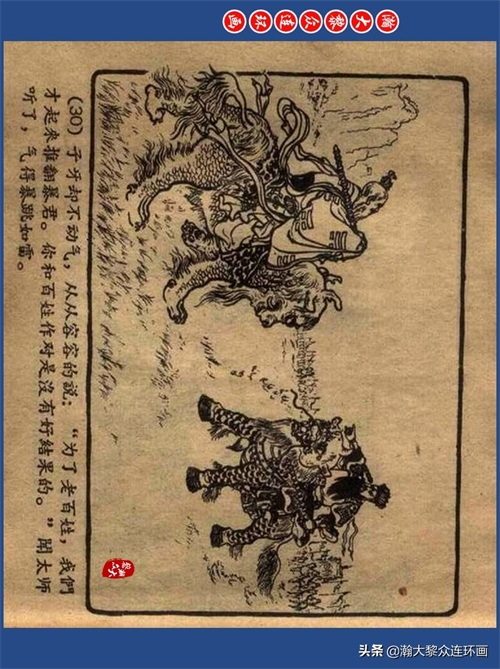 瀚大黎众连环画
(30) 子牙却不动气，从从容容的说：“为了老百姓，我們
才起来推翻暴君。你和百姓作对是没有好结果的。”聞太师
听了，气得暴跳如雷。
头条 @瀚大黎众连环画